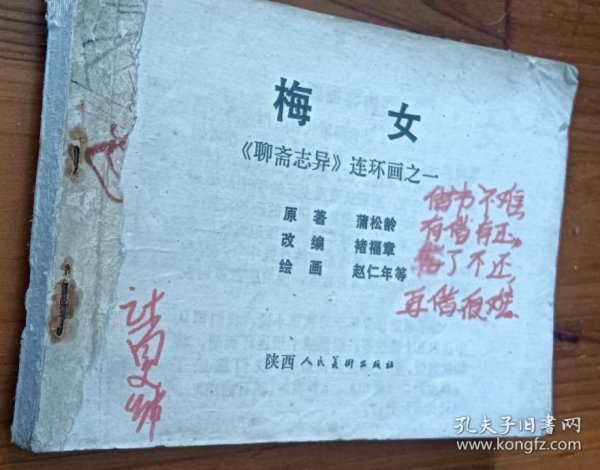 梅女
《聊斋志异》连环画之一
原著 蒲松龄
改编 褚福章
绘画 赵仁年等
陕西人民美术出版社
借书不难
有借有还。
借了不还,
再借很难.
孔夫子旧书网
www.kongfz.com